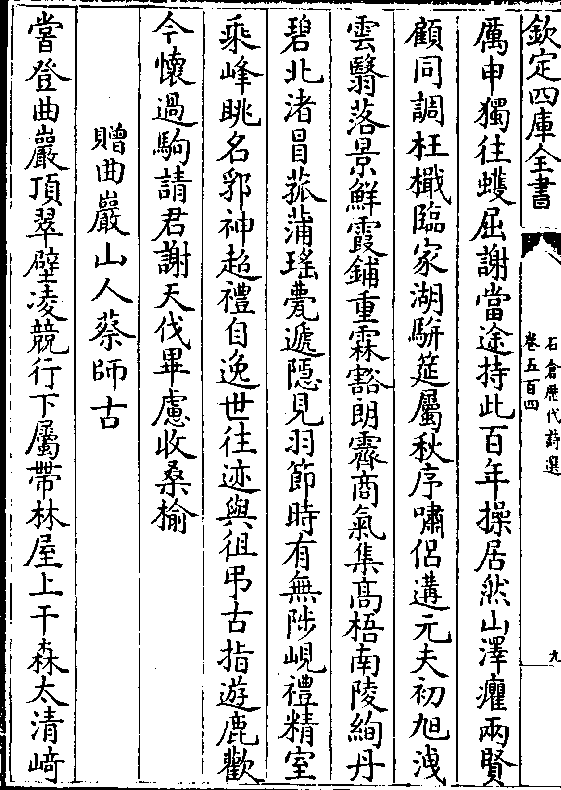 欽定四庫全書
石倉歷代詩選
卷五百四
九
厲申獨往蠖屈謝當途持此百年操居然山澤癯兩賢
顧同調枉檝臨家湖駢筵屬秋序嘯侣遘元夫初旭洩
雲翳落景鮮霞鋪重霖豁朗霽商氣集高梧南陵絢丹
碧北渚冒菰蒲瑤甍遞隱見羽節時有無陟峴禮精室
乘峰眺名郛神超禮自逸世往迹與徂弔古指遊鹿歡
今懷過駒請君謝天伐畢慮收桑榆
贈曲巖山人蔡師古
嘗登曲巖頂翠壁凌競行下屬帶林屋上干森太清﨑